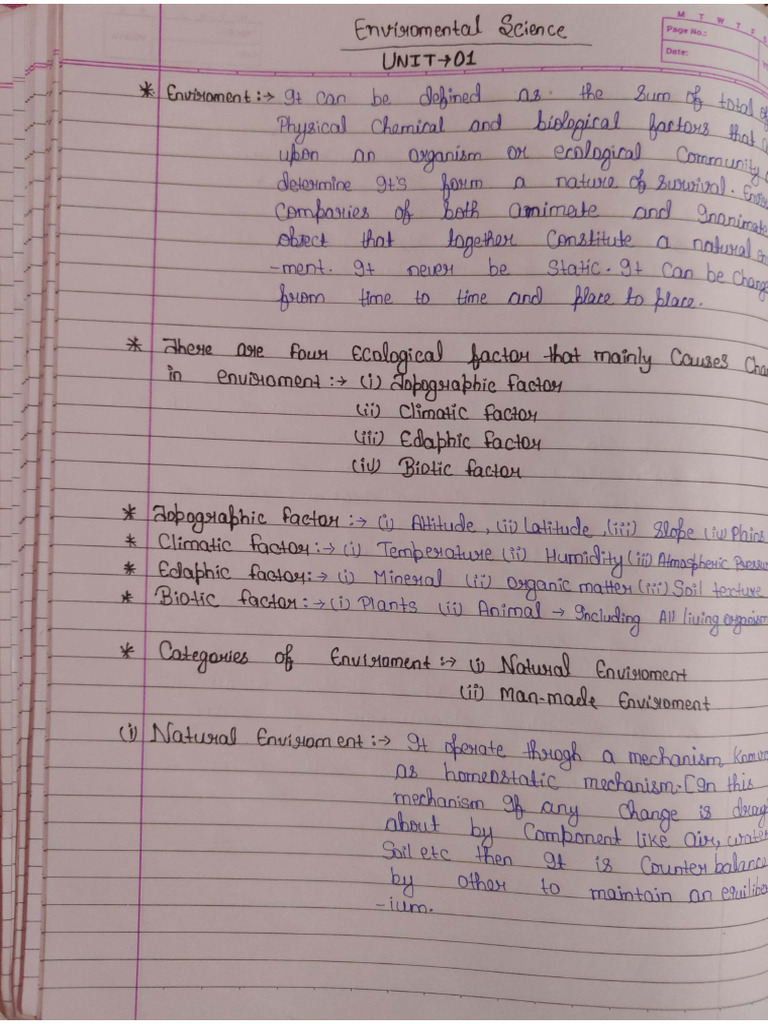 Enviromental Science
UNIT→01
M T W T F S
Page No.:
Date:
* Enviroment:→ It can be defined as. the sum of total of
Physical Chemical and biological factors that
upon an organism or ecological Community
determine It's form a nature of survival.
Comparies of both amimate and Inanimate
obect that together Constitute a natural
-ment. It never be Static. It can be
from time to time and place to place.
* There are four Ecological factor that mainly Causes
in enviroment:→ (i) Topographic factor
(ii) Climatic factor
(iii) Edaphic factor
(iv) Biotic factor
* Topographic factor:→ (i) Altitude, (ii) Latitude, (iii) Slope (iv) Plains
* Climatic factor:→ (i) Temperature (ii) Humidity (iii) Atmospheric
* Edaphic factor:→ (i) Mineral (ii) organic matter (iii) Soil texture
* Biotic factor:→ (i) Plants (ii) Animal → Including All living
* Categories of Enviroment:→ (i) Natural Enviroment
(ii) Man-made Enviroment
(i) Natural Enviroment:→ It operate throgh a mechanism
as homeostatic mechanism. [In this
mechanism If any change is
about by Component like air, water
Soil etc then It is Counter
by other to maintain an
-ium.